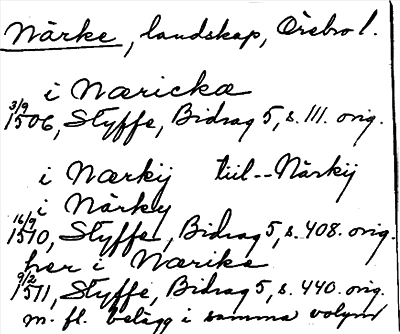 Närke, landskap, Örebro l.
i Nærickæ
3/9 1506, Styffe, Bidrag 5, s. 111. orig.
i Nærkij tiil -- Närkij
i Närky
16/9 1510, Styffe, Bidrag 5, s. 408. orig.
her i Nærike
9/2 1511, Styffe, Bidrag 5, s. 440. orig.
m. fl. belägg i samma volym